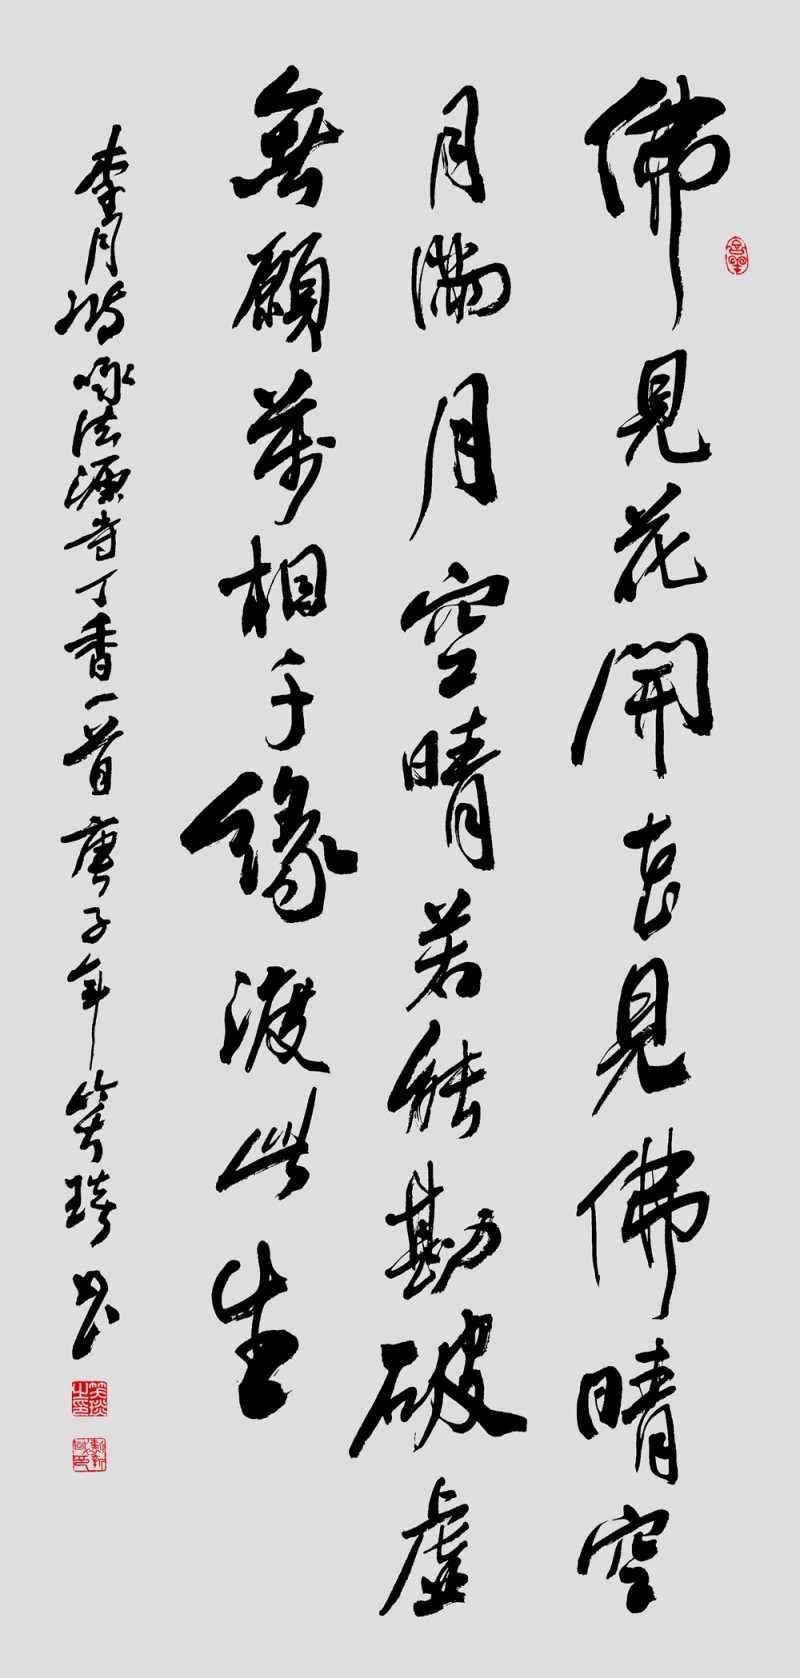 佛見花開花見佛晴空
月滿月空晴若能勘破虛
無願萬相千緣渡此生
李月潞啄法源寺丁香一首庚子年笑琰書